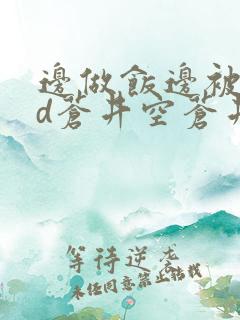 邊做飯邊被
d蒼井空蒼井
等待逆袭
未经同意禁止转载